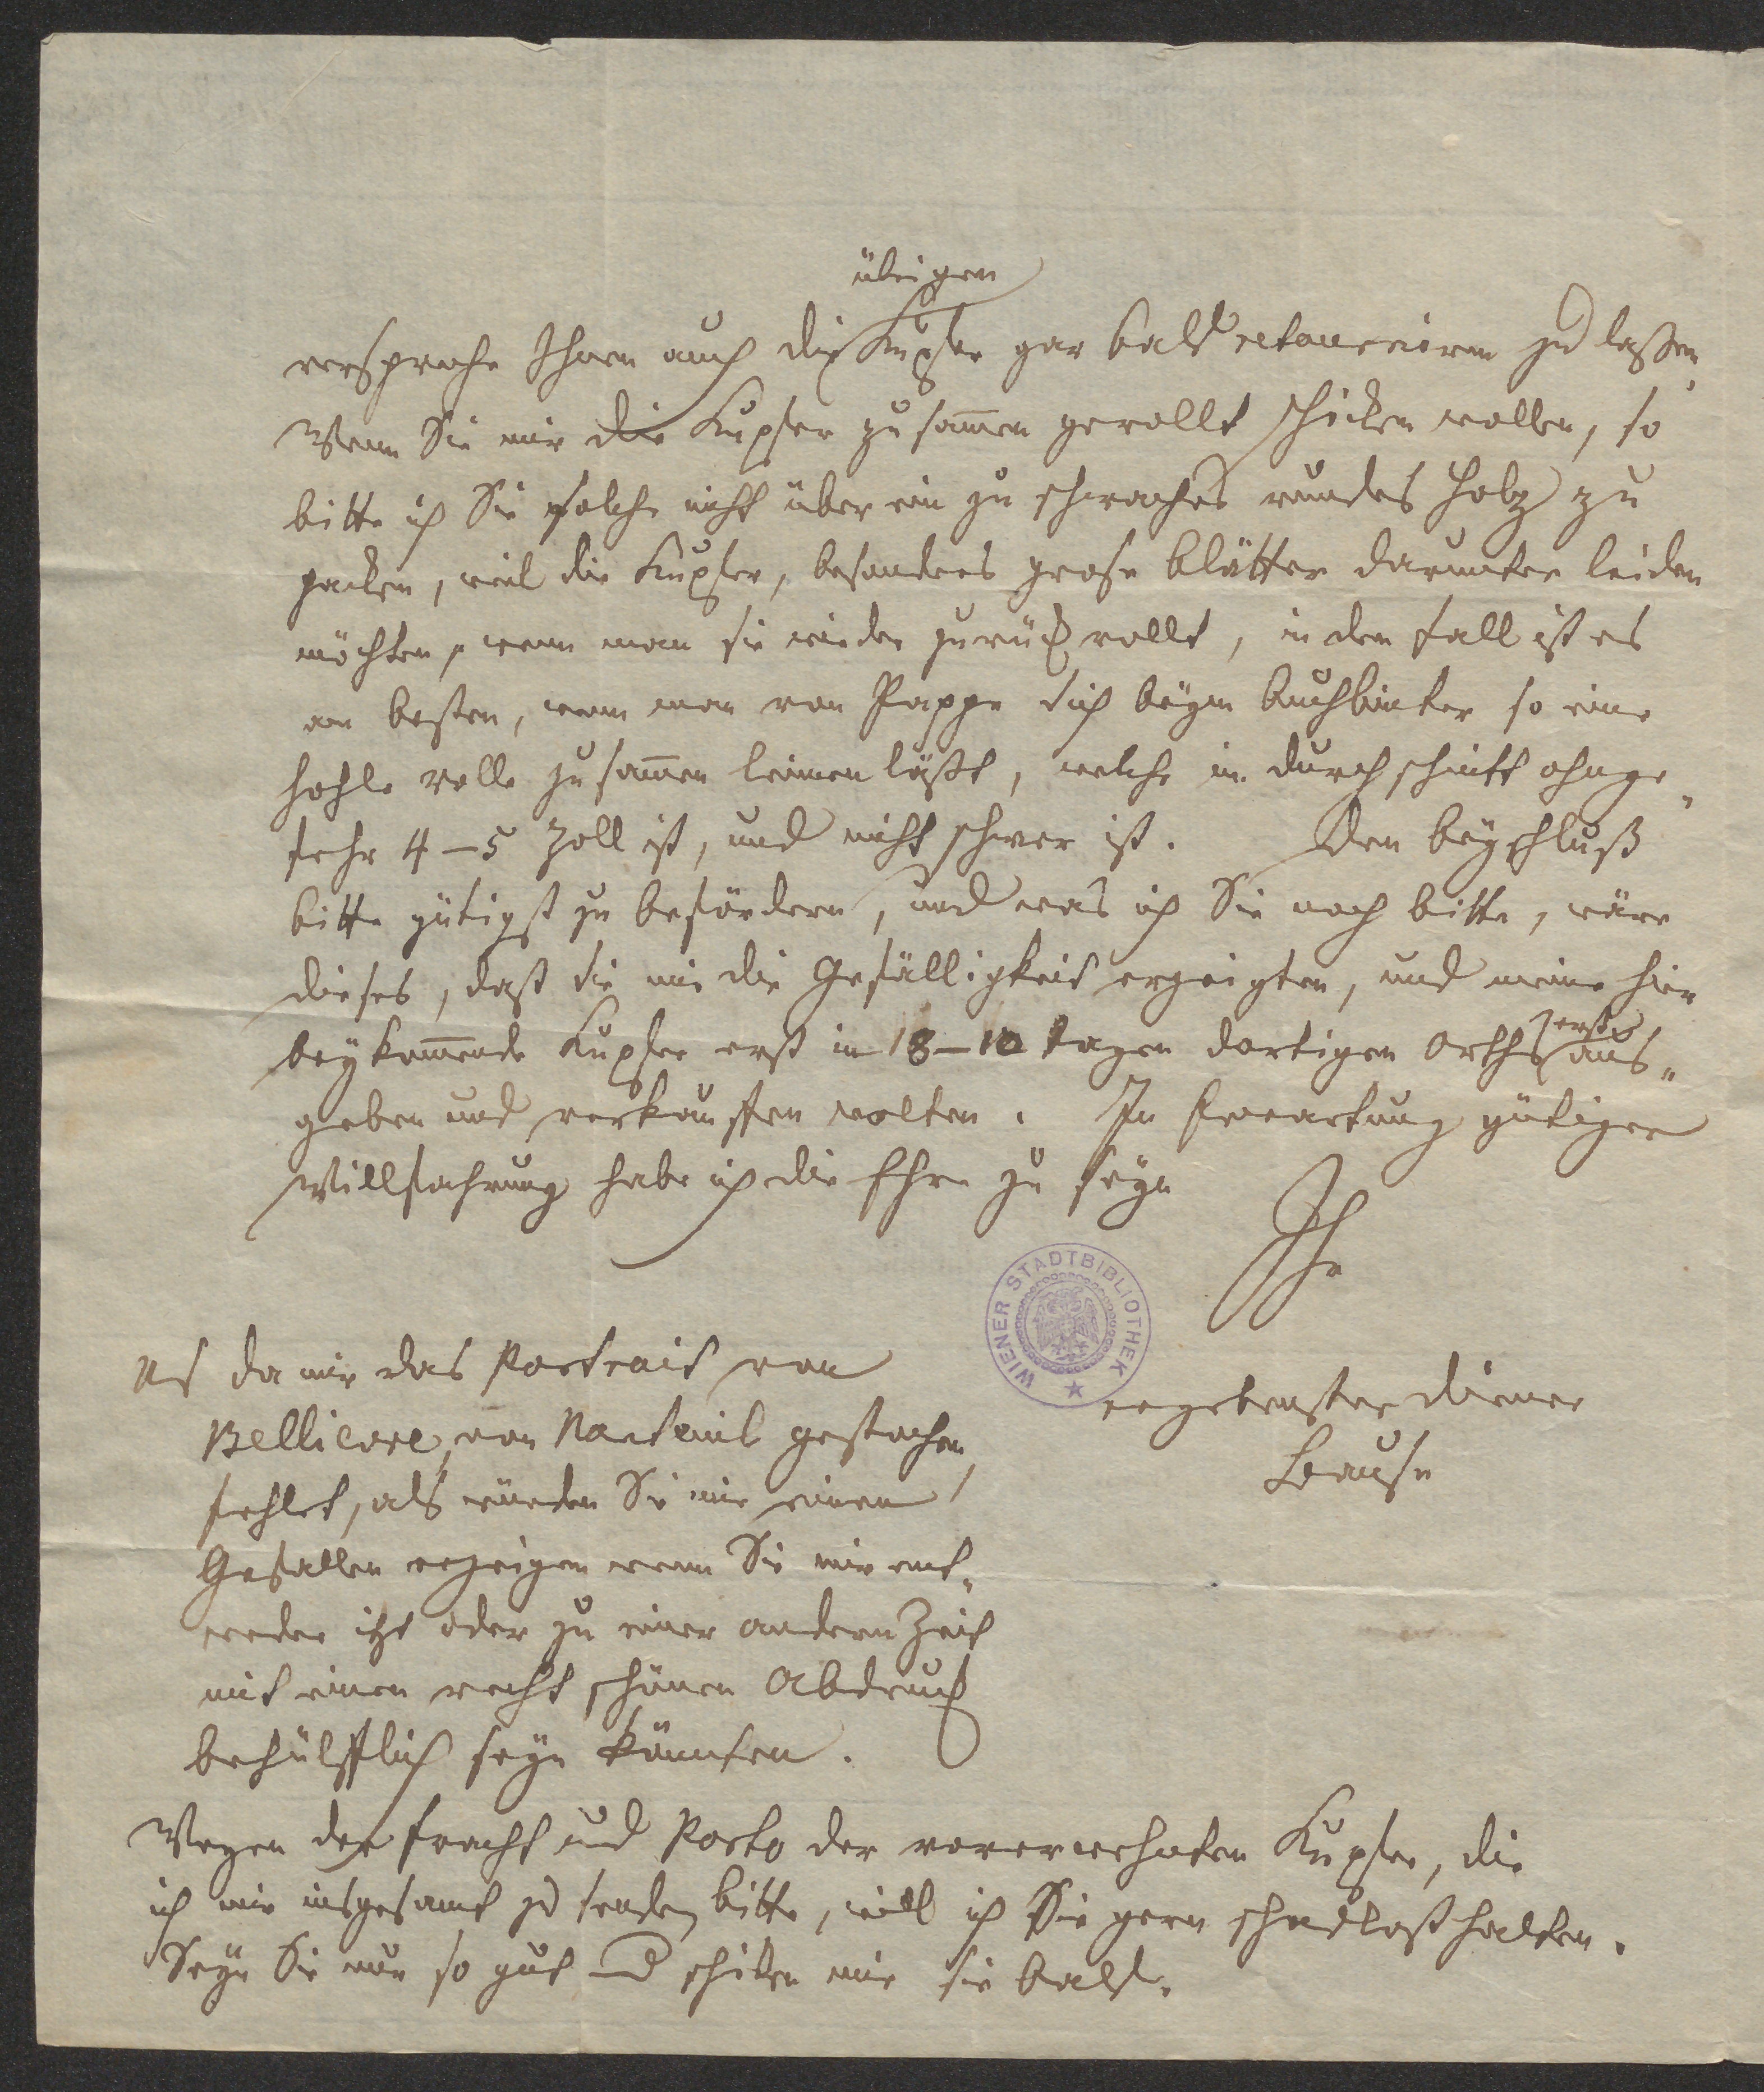 übrigen
verspreche Ihnen auch die Kupfer gar bald retourniren zu laßen,
Wenn Sie mir die Kupfer zusam̅en gerollt schicken wollen, so
bitte ich Sie solche nicht über ein zu schwaches rundes Holz zu
packen, weil die Kupfer, besonders grose blätter darunter leiden
möchten, wenn man sie wieder zurück rollt, in dem fall ist es
am besten, wenn man von Pappe sich beym buchbinder so eine
hohle rolle zusam̅en leimen läßt, welche im durchschnitt ohnge„
fehr 4–5 Zoll ist, und nicht schwer ist. Den beyschluß
bitte gütigst zu befördern, und was ich Sie noch bitte, wäre
dieses, daß sie mir die Gefälligkeit erzeigten, und meine hier
beykom̅ende Kupfer erst in 8–10 tagen dortigen Orths
erst aus„
geben und verkauffen wolten. In Erwartung gütiger
Willfahrung habe ich die Ehre zu seyn
Ihr
WIENER STADTBIBLIOTHEK
ergebenster Diener
Bause
NS da mir das Portrait von
Bellievre, von Nanteuil gestochen,
fehlet, als würden Sie mir einen
Gefallen erzeigen wenn Sie mir ent„
weder itzt oder zu einer andern Zeit
mit einen recht schönen Abdruck
behülfflich seyn könnten.
Wegen der fracht und Porto der vorerwehnten Kupfer, die
ich mir insgesamt zu senden bitte, will ich Sie gern schadloß halten.
Seyn Sie nur so gut und schicken mir sie bald.